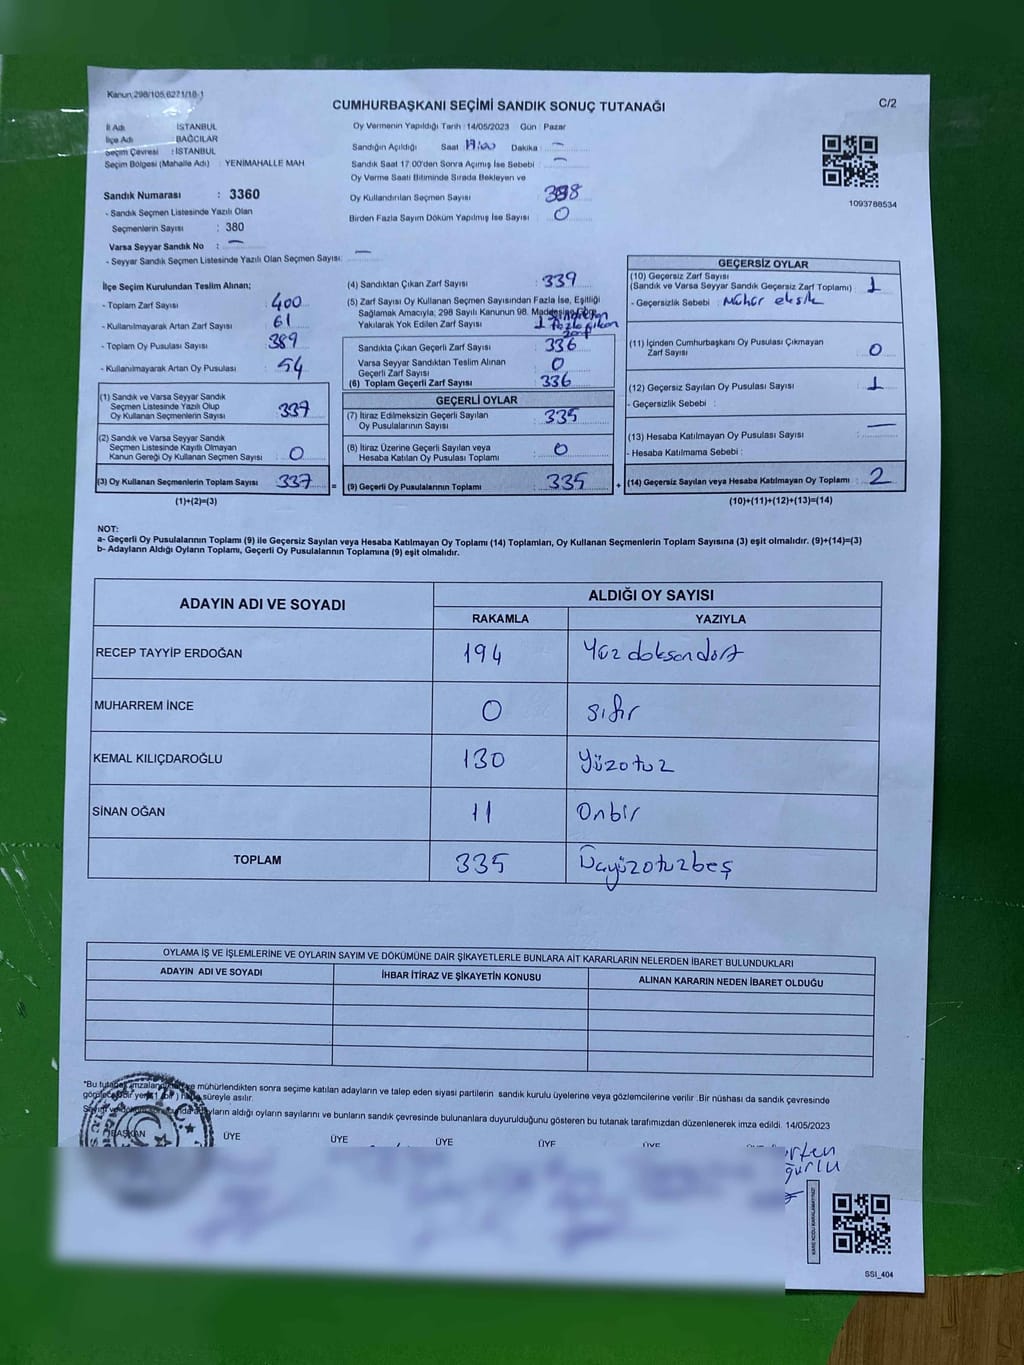 Kanun,298/105,6271/18-1
CUMHURBAŞKANI SEÇİMİ SANDIK SONUÇ TUTANAĞI
C/2
İl Adı İSTANBUL
İlçe Adı : BAĞCILAR
Seçim Çevresi : İSTANBUL
Seçim Bölgesi (Mahalle Adı) : YENİMAHALLE MAH
Oy Vermenin Yapıldığı Tarih : 14/05/2023 Gün : Pazar
Sandığın Açıldığı Saat Dakika : —
Sandık Saat 17:00'den Sonra Açımış İse Sebebi : —
Oy Verme Saati Bitiminde Sırada Bekleyen ve
Oy Kullandırılan Seçmen Sayısı
Birden Fazla Sayım Döküm Yapılmış İse Sayısı : 0
1093788534
Sandık Numarası : 3360
- Sandık Seçmen Listesinde Yazılı Olan
Seçmenlerin Sayısı : 380
Varsa Seyyar Sandık No : —
- Seyyar Sandık Seçmen Listesinde Yazılı Olan Seçmen Sayısı: —
İlçe Seçim Kurulundan Teslim Alınan;
- Toplam Zarf Sayısı : 400
- Kullanılmayarak Artan Zarf Sayısı : 61
- Toplam Oy Pusulası Sayısı : 389
- Kullanılmayarak Artan Oy Pusulası : 54
(1) Sandık ve Varsa Seyyar Sandık
Seçmen Listesinde Yazılı Olup
Oy Kullanan Seçmenlerin Sayısı : 337
(2) Sandık ve Varsa Seyyar Sandık
Seçmen Listesinde Kayıtlı Olmayan
Kanun Gereği Oy Kullanan Seçmen Sayısı : 0
(3) Oy Kullanan Seçmenlerin Toplam Sayısı : 337
(1)+(2)=(3)
(4) Sandıktan Çıkan Zarf Sayısı : 339
(5) Zarf Sayısı Oy Kullanan Seçmen Sayısından Fazla İse, Eşitliği
Sağlamak Amacıyla; 298 Sayılı Kanunun 98. Maddesine Göre
Yakılarak Yok Edilen Zarf Sayısı : 1 fazla çıkan zarf
Sandıkta Çıkan Geçerli Zarf Sayısı : 336
Varsa Seyyar Sandıktan Teslim Alınan
Geçerli Zarf Sayısı : 0
(6) Toplam Geçerli Zarf Sayısı : 336
GEÇERLİ OYLAR
(7) İtiraz Edilmeksizin Geçerli Sayılan
Oy Pusulalarının Sayısı : 335
(8) İtiraz Üzerine Geçerli Sayılan veya
Hesaba Katılan Oy Pusulası Toplamı : 0
= (9) Geçerli Oy Pusulalarının Toplamı : 335
GEÇERSİZ OYLAR
(10) Geçersiz Zarf Sayısı
(Sandık ve Varsa Seyyar Sandık Geçersiz Zarf Toplamı) : 1
- Geçersizlik Sebebi : Mühür eksik
(11) İçinden Cumhurbaşkanı Oy Pusulası Çıkmayan
Zarf Sayısı : 0
(12) Geçersiz Sayılan Oy Pusulası Sayısı : 1
- Geçersizlik Sebebi :
(13) Hesaba Katılmayan Oy Pusulası Sayısı : —
- Hesaba Katılmama Sebebi :
+ (14) Geçersiz Sayılan veya Hesaba Katılmayan Oy Toplamı : 2
(10)+(11)+(12)+(13)=(14)
NOT:
a- Geçerli Oy Pusulalarının Toplamı (9) ile Geçersiz Sayılan veya Hesaba Katılmayan Oy Toplamı (14) Toplamları, Oy Kullanan Seçmenlerin Toplam Sayısına (3) eşit olmalıdır. (9)+(14)=(3)
b- Adayların Aldığı Oyların Toplamı, Geçerli Oy Pusulalarının Toplamına (9) eşit olmalıdır.
ADAYIN ADI VE SOYADI ALDIĞI OY SAYISI
RAKAMLA YAZIYLA
RECEP TAYYİP ERDOĞAN 194 Yüz doksandört
MUHARREM İNCE 0 sıfır
KEMAL KILIÇDAROĞLU 130 Yüzotuz
SİNAN OĞAN 11 Onbir
TOPLAM 335 Üçyüzotuzbeş
OYLAMA İŞ VE İŞLEMLERİNE VE OYLARIN SAYIM VE DÖKÜMÜNE DAİR ŞİKAYETLERLE BUNLARA AİT KARARLARIN NELERDEN İBARET BULUNDUKLARI
ADAYIN ADI VE SOYADI İHBAR İTİRAZ VE ŞİKAYETİN KONUSU ALINAN KARARIN NEDEN İBARET OLDUĞU
*Bu mühürlendikten sonra seçime katılan adayların ve talep eden siyasi partilerin sandık kurulu üyelerine veya gözlemcilerine verilir .Bir nüshası da sandık çevresinde
bir yere ( 1 bir ) süreyle asılır.
adayların aldığı oyların sayılarını ve bunların sandık çevresinde bulunanlara duyurulduğunu gösteren bu tutanak tarafımızdan düzenlenerek imza edildi. 14/05/2023
BAŞKAN ÜYE ÜYE ÜYE ÜYE ÜYE
SSI_404